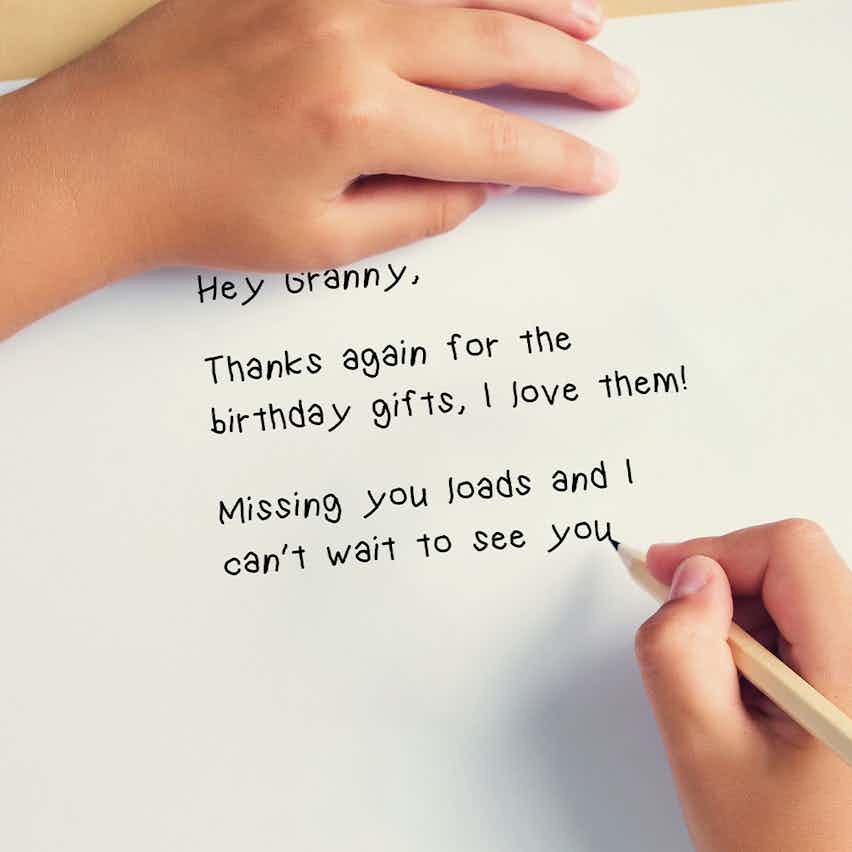 Hey Granny,
Thanks again for the
birthday gifts, I love them!
Missing you loads and I
can't wait to see you